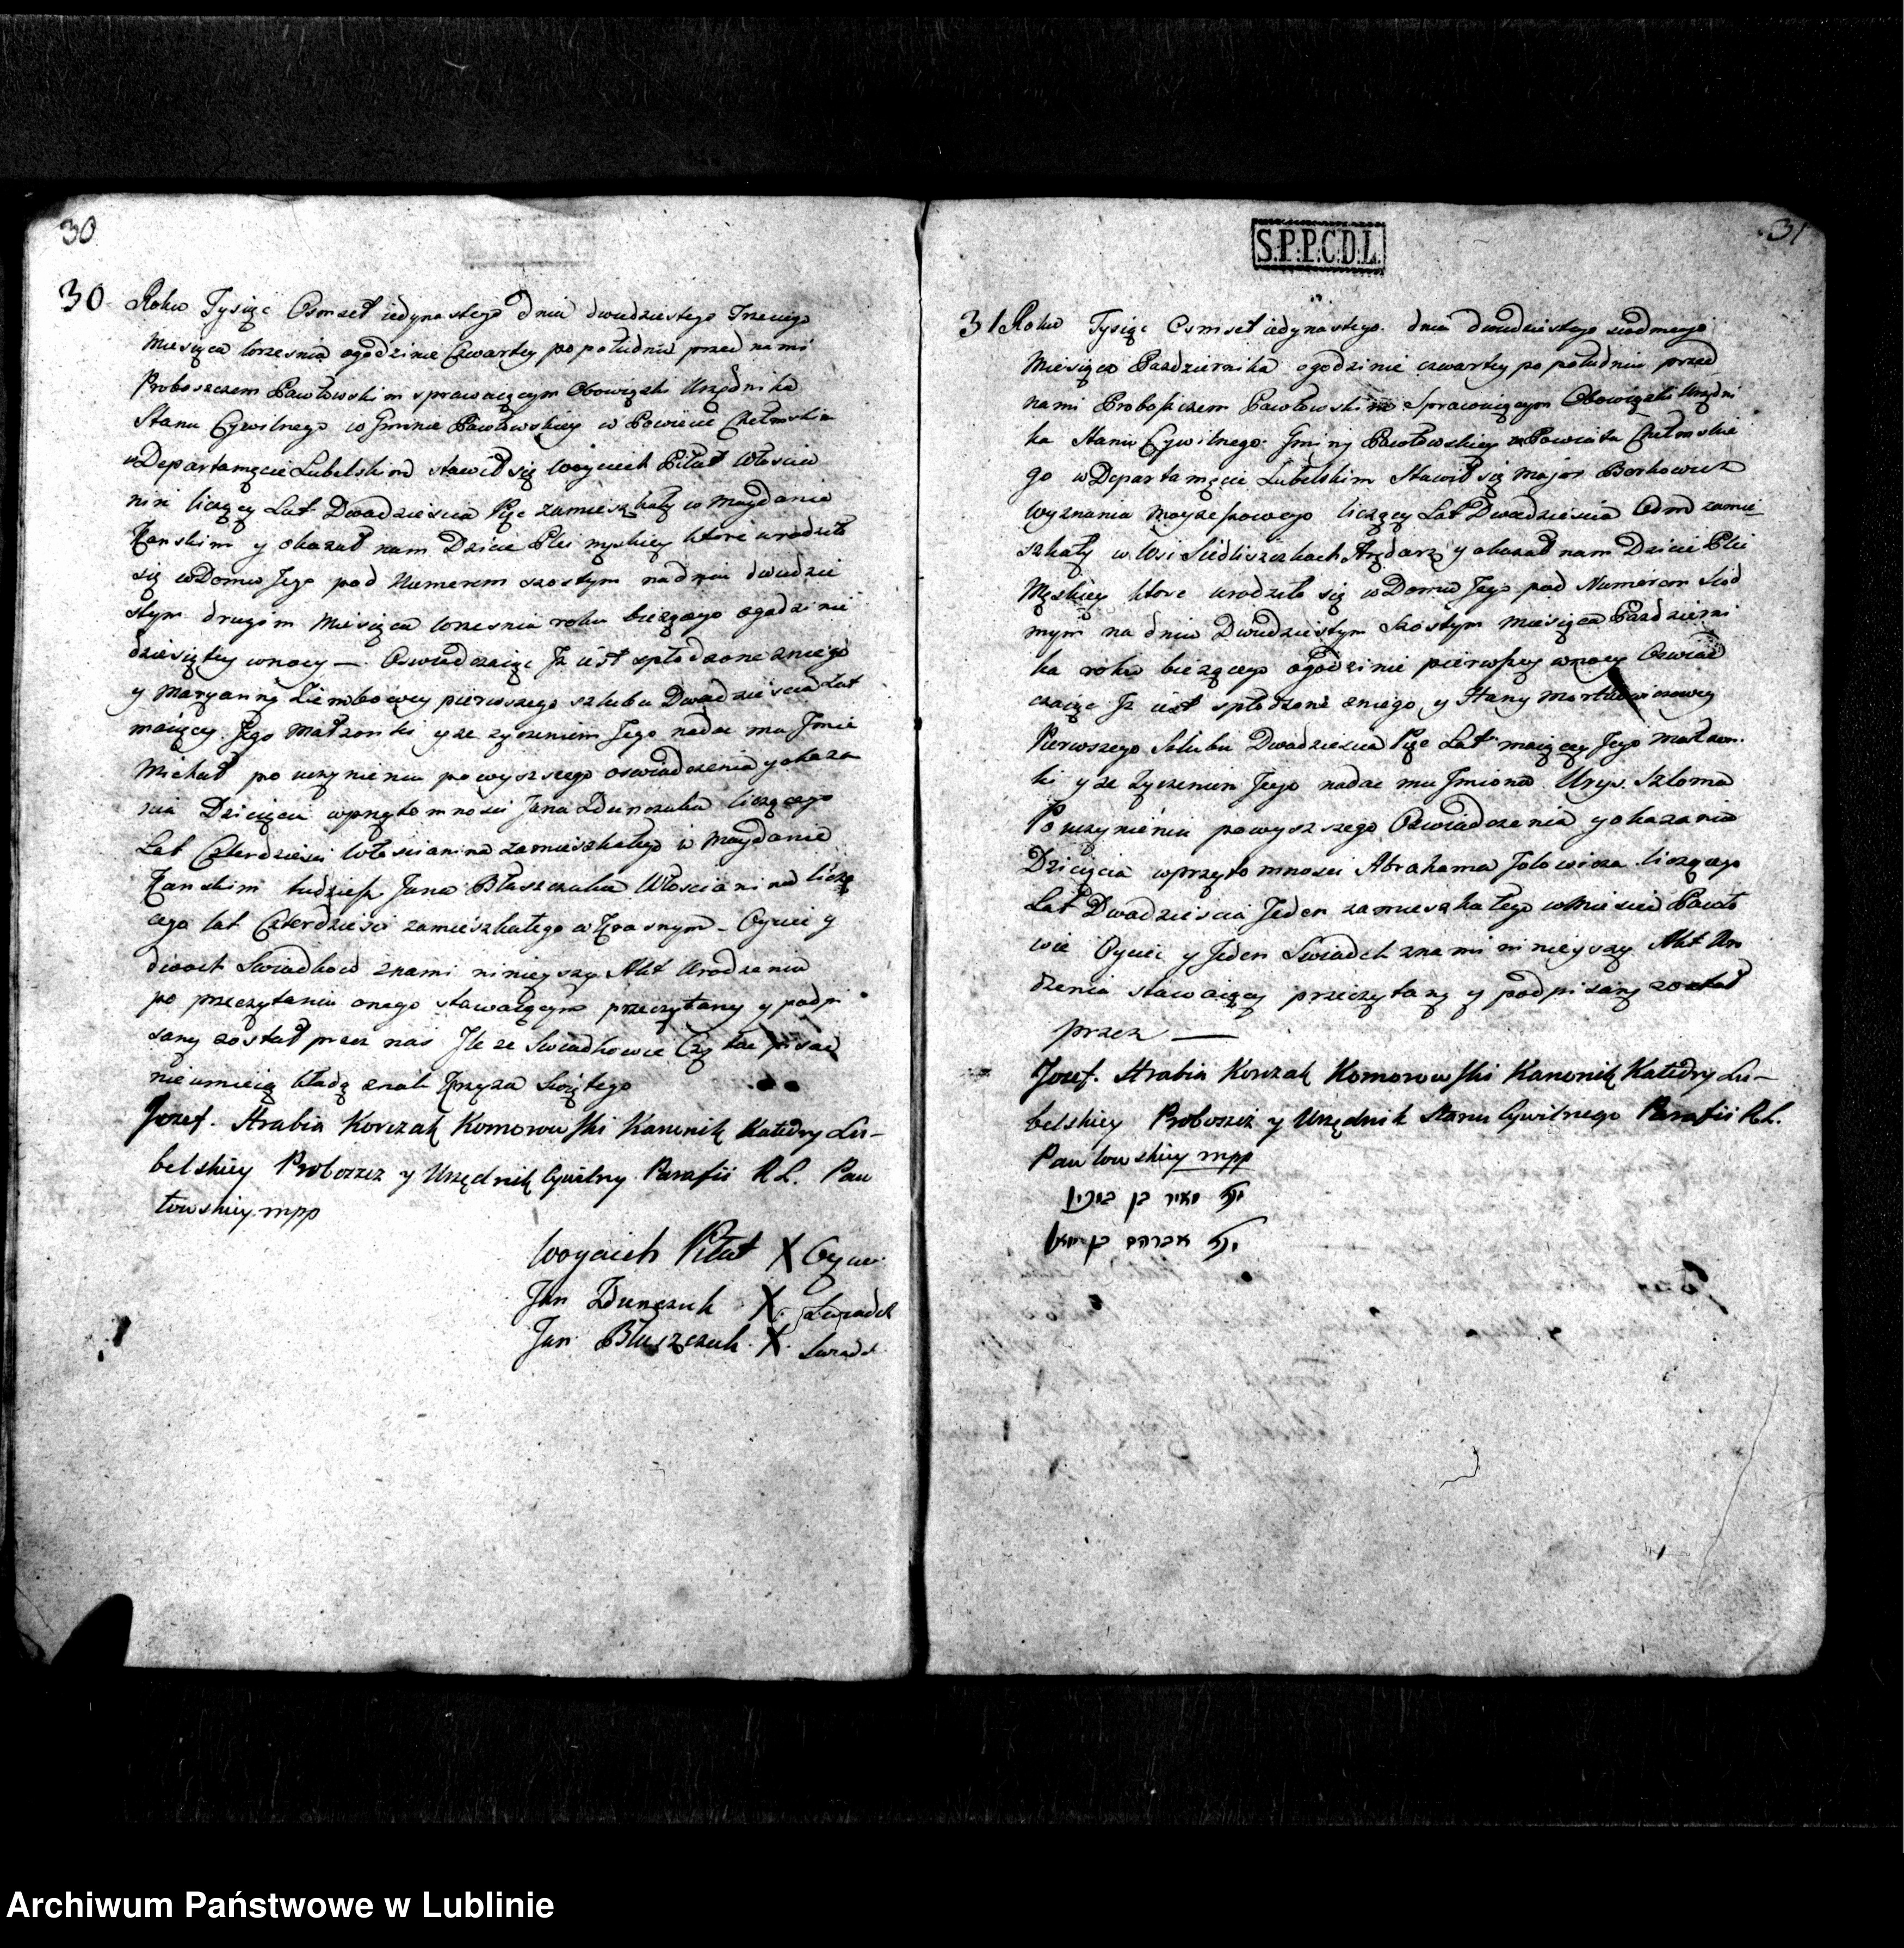 30
30 Roku Tysiąc Osmset iedynastego dnia dwudziestego Trzeciego
Miesiąca Wrzesnia ogodzinie Czwartey po południu przed nami
Proboszczem Pawłowskim sprawuiącym Obowiązki Urzędnika
Stanu Cywilnego w Gminie Pawłowskiey w Powiecie Chełmskim
w Departamęcie Lubelskim stawił się Woyciech Piłat Włoscia
nin liczący Lat Dwadziescia Pięc zamieszkały w Maydanie
Zanskim y okazał nam Dziecie Płci męskiey ktore urodziło
się w Domu Jego pod Numerem szostym na dniu dwudzie
stym drugim Miesiąca Wrzesnia roku bieżącego ogodzinie
dziesiątey wnocy — Oswiadczaiąc Jż iest spłodzone zniego
y Maryanny Ziembowey pierwszego szlubu Dwadziescia Lat
maiącey Jego Małzonki y ze zyczeniem Jego nadac mu Jmie
Michał po uczynieniu powyszszego oswiadczenia y okaza
nia Dziecięcia wprzytomnosci Jana Dunczuka liczącego
Lat Czterdziesci Włoscianina zamieszkałego w Maydanie
Zanskim tudziesz Jana Błaszczuka Włoscianina liczą
cego lat Czterdziesci zamieszkałego w Krasnym – Oyciec y
dwoch Swiadkow znami ninieyszy Akt Urodzenia
po przeczytaniu onego stawaiącym przeczytany y podpi
sany został przez nas Jle ze Swiadkowie Czytac pisac
nieumieią kładą znak Krzyza Swiętego
Jozef. Hrabia Korczak Komorowski Kanonik Katedry Lu–
belskiey Proboszcz y Urzędnik Cywilny Parafii R L. Paw
łowskiey mpp
Woyciech Piłat X Oyciec
Jan Dunczuk X Swiadek
Jan Błaszczuk X Swiadek
S.P.P.C.D.L.
31
31 Roku Tysiąc Osmset iedynastego dnia dwudziestego siodmego
Miesiąca Pazdziernika ogodzinie czwartey po południu przed
nami Proboszczem Pawłowskim Sprawuiącym Obowiązki Urzędni
ka Stanu Cywilnego Gminy Pawłowskiey Powiatu Chełmskie
go w Departamęcie Lubelskim Stawił się Major Borkowicz
Wyznania Moyzeszowego liczący Lat Dwadziescia Osm zamie
szkały w Wsi Siedliszczkach Arędarz y okazał nam Dziecie Płci
Męskiey ktore urodziło się w Domu Jego pod Numerem Siod
mym na dniu Dwudziestym Szostym Miesiąca Pazdzierni
ka roku bieżącego ogodzinie pierwszey wnocy Oswiad
czaiąc Jż iest spłodzone zniego y Hany
Pierwszego Szlubu Dwadziescia Pięc Lat maiącey Jego Małzon
ki y ze życzeniem Jego nadac mu Jmiona Urys. Szloma
Po uczynieniu powyszszego Oswiadczenia y okazania
Dziecięcia wprzytomnosci Abrahama Jolowicza liczącego
Lat Dwadziescia Jeden zamieszkałego w Miescie Pawło
wie Oyciec y Jeden Swiadek znami ninieyszy Akt Uro
dzenia stawaiący przeczytany y podpisany został
przez —
Jozef. Hrabia Korczak Komorowski Kanonik Katedry Lu–
belskiey Proboszcz y Urzędnik Stanu Cywilnego Parafii R L.
Pawłowskiey mpp
מאיר בן
אברהם בן
Archiwum Państwowe w Lublinie